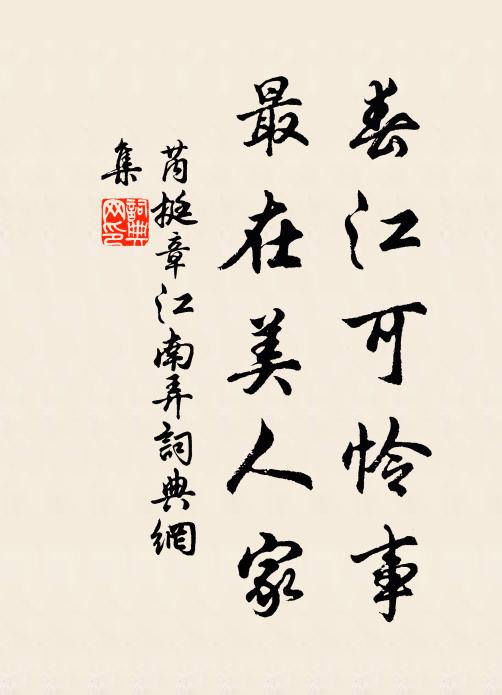 春江可怜事
最在美人家
芮挺章江南弄詞典網
集
詞典
网印